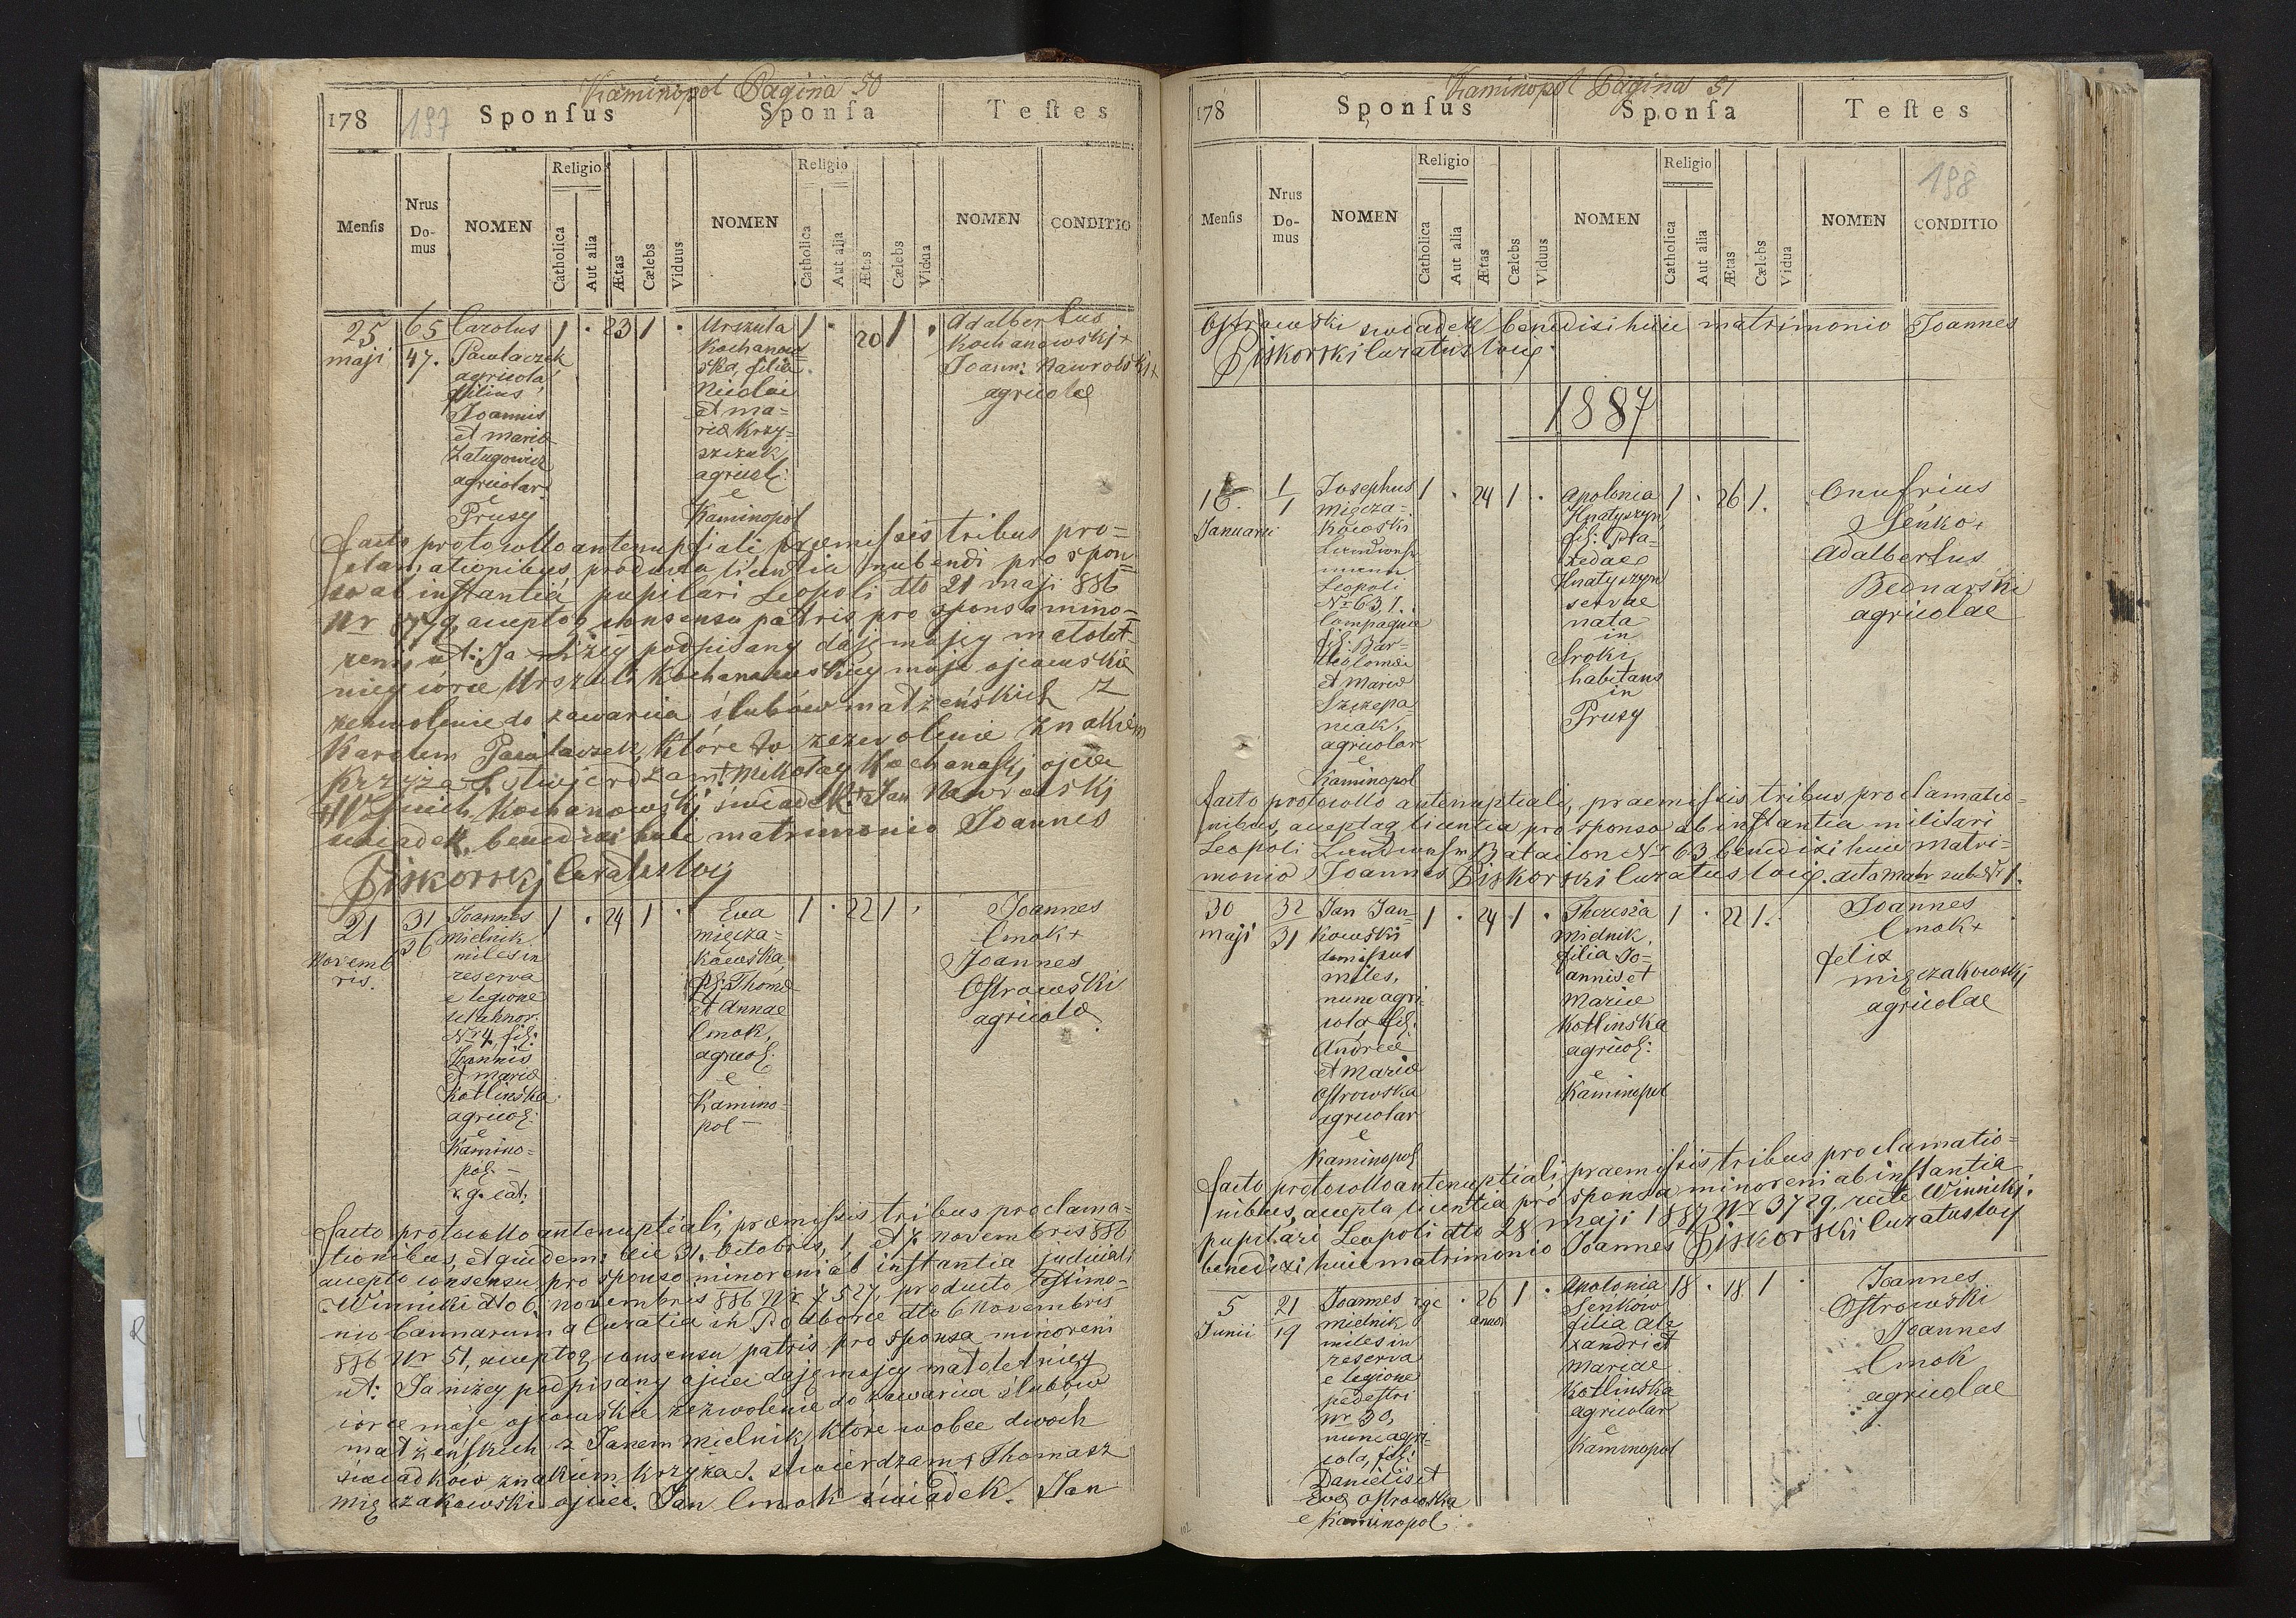 Kaminopol Pagina 50
178 197 Sponſus Sponſa Teſtes
Menſis Nrus Do-mus NOMEN Religio Catholica Aut alia Ætas Cælebs Viduus NOMEN Religio Catholica Aut alia Ætas Cælebs Vidua NOMEN CONDITIO
25 maji
65
47.
Carolus
Pawlaczek
agricola
filius
Joannis
et mariæ
Zatugowicz
agricolar
e
Prusy
1 . 23 1 .
Urszula
Kochanow=
ska, filia
Nicolai
et ma=
riæ Krzy=
szczuk
agricol:
e
Kaminopol
1 . 20 1 .
Adalbertus
Kochanowski +
Joann: Nawrolski +
agricolæ
facto protocollo antenuptiali præmissis tribus pro=
clamationibus, producta licentia nubendi pro spon=
so ab instantia pupilari Leopoli dto 21 maji 886
Nr acceptoq consensu patris pro sponsa mino=
reni, ut: Ja niżéj podpisany daję mojej małolet=
niej córce Urszuli Kochanowskiej moje ojcowskie
zezwolenie do zawarcia ślubów małżeńskich z
Karolem Pawlaczek, które to zezwolenie znakiem
krzyża stwierdzam + Mikołaj Kochanoski ojciec
+ Wojciech Kochanowski świadek + Jan Nawrolski
swiadek, benedixi huic matrimonio Joannes
Piskorski Curatus loci
21
Novemb
ris.
31
36
Joannes
Mielnik
miles in
reserva
e legione
Nr 4, fil:
Joannis
et mariæ
Kotlinska
agricol:
e
Kamino=
pol. –
r. g. cat:
1 . 24 1 .
Eva
mięcza=
kowska,
fil: Thomæ
et Annae
Cmok,
agricol:
e
Kamino=
pol –
1 . 22 1 .
Joannes
Cmok +
Joannes
Ostrowski
agricolæ
facto protocollo antenuptiali, præmissis tribus proclama=
tionibus, et quidem: die 31. octobris, 1 et 7. novembris 886
accepto consensu pro sponso minoreni ab instantia judiciali
Winniki dto 6. novembris 886 Nr 7527, producto testimo=
nio bannorum a Curatia in Podborce dto 6 Novembris
886 Nr 51, acceptoq consensu patris pro sponsa minoreni
ut: Ja niżey podpisany ojciec daję mojej małoletniey
córce moje ojcowskie zezwolenie do zawarcia ślubów
małżeńskich z Janem Mielnik, które wobec dwoch
świadków znakiem krzyża stwierdzam + Thomasz
Mięczakowski ojciec. Jan Cmok świadek. Jan
Kaminopol Pagina 51
178 Sponſus Sponſa Teſtes
198
Menſis Nrus Do-mus NOMEN Religio Catholica Aut alia Ætas Cælebs Viduus NOMEN Religio Catholica Aut alia Ætas Cælebs Vidua NOMEN CONDITIO
Ostrowski swiadek benedixi huic matrimonio Joannes
Piskorski Curatus loci.
1887
16.
Januarii
1
1
Josephus
mięcza=
kowski
Landwehr
mann
Leopoli
No 63, 1.
Compagnie
fil: Bar=
tholomæi
et Mariæ
Szczepa
niak,
agricolar
e
Kaminopol
1 . 24 1 .
Apolonia
Hnatyszyn
fil: Pla=
xedae
Hnatyszyn
servae
nata
in
Sroki
habitans
in
Prusy
1 . 26 1 .
Onufrius
Seńko +
Adalbertus
Bednarski
agricolae
facto protocollo antenuptiali, praemissis tribus proclamatio=
nibus, acceptaq licentia pro sponso ab instantia militari
Leopoli Landwehr Batailon No 63 benedixi huic matri=
monio Joannes Piskorski Curatus loci.
30
maji
32
31
Jan Jan=
kowski
demissus
miles,
nunc agri
cola, fil:
Andreæ
et Mariæ
Ostrowska
agricolar
e
Kaminopol
1 . 24 1 .
Theresia
mielnik,
filia Jo=
annis et
Mariæ
Kotlinska
agricol:
e
Kaminopol
1 . 22 1 .
Joannes
Cmok +
felix
mięczakowski
agricolae
facto protocollo antenuptiali, praemissis tribus proclamatio=
nibus, accepta licentia pro sponsa minoreni ab instantia
pupilari Leopoli dto 28 maji 1887 Nr 3729, recte Winniki.
benedixi huic matrimonio Joannes Piskorski Curatus loci
5
Junii
21
19
Joannes
mielnik
miles in
reserva
e legione
pedestri
Nr 30,
nunc agri=
cola, fil:
Danielis et
Evæ Ostrowska
e Kaminopol
rgc . 26 1 .
annor
Apolonia
Seńkow
filia Ale
xandri et
Mariae
Kotlinska
agricolar
e
Kaminopol
18 . 18 1 .
Joannes
Ostrowski
Joannes
Cmok
agricolae
102